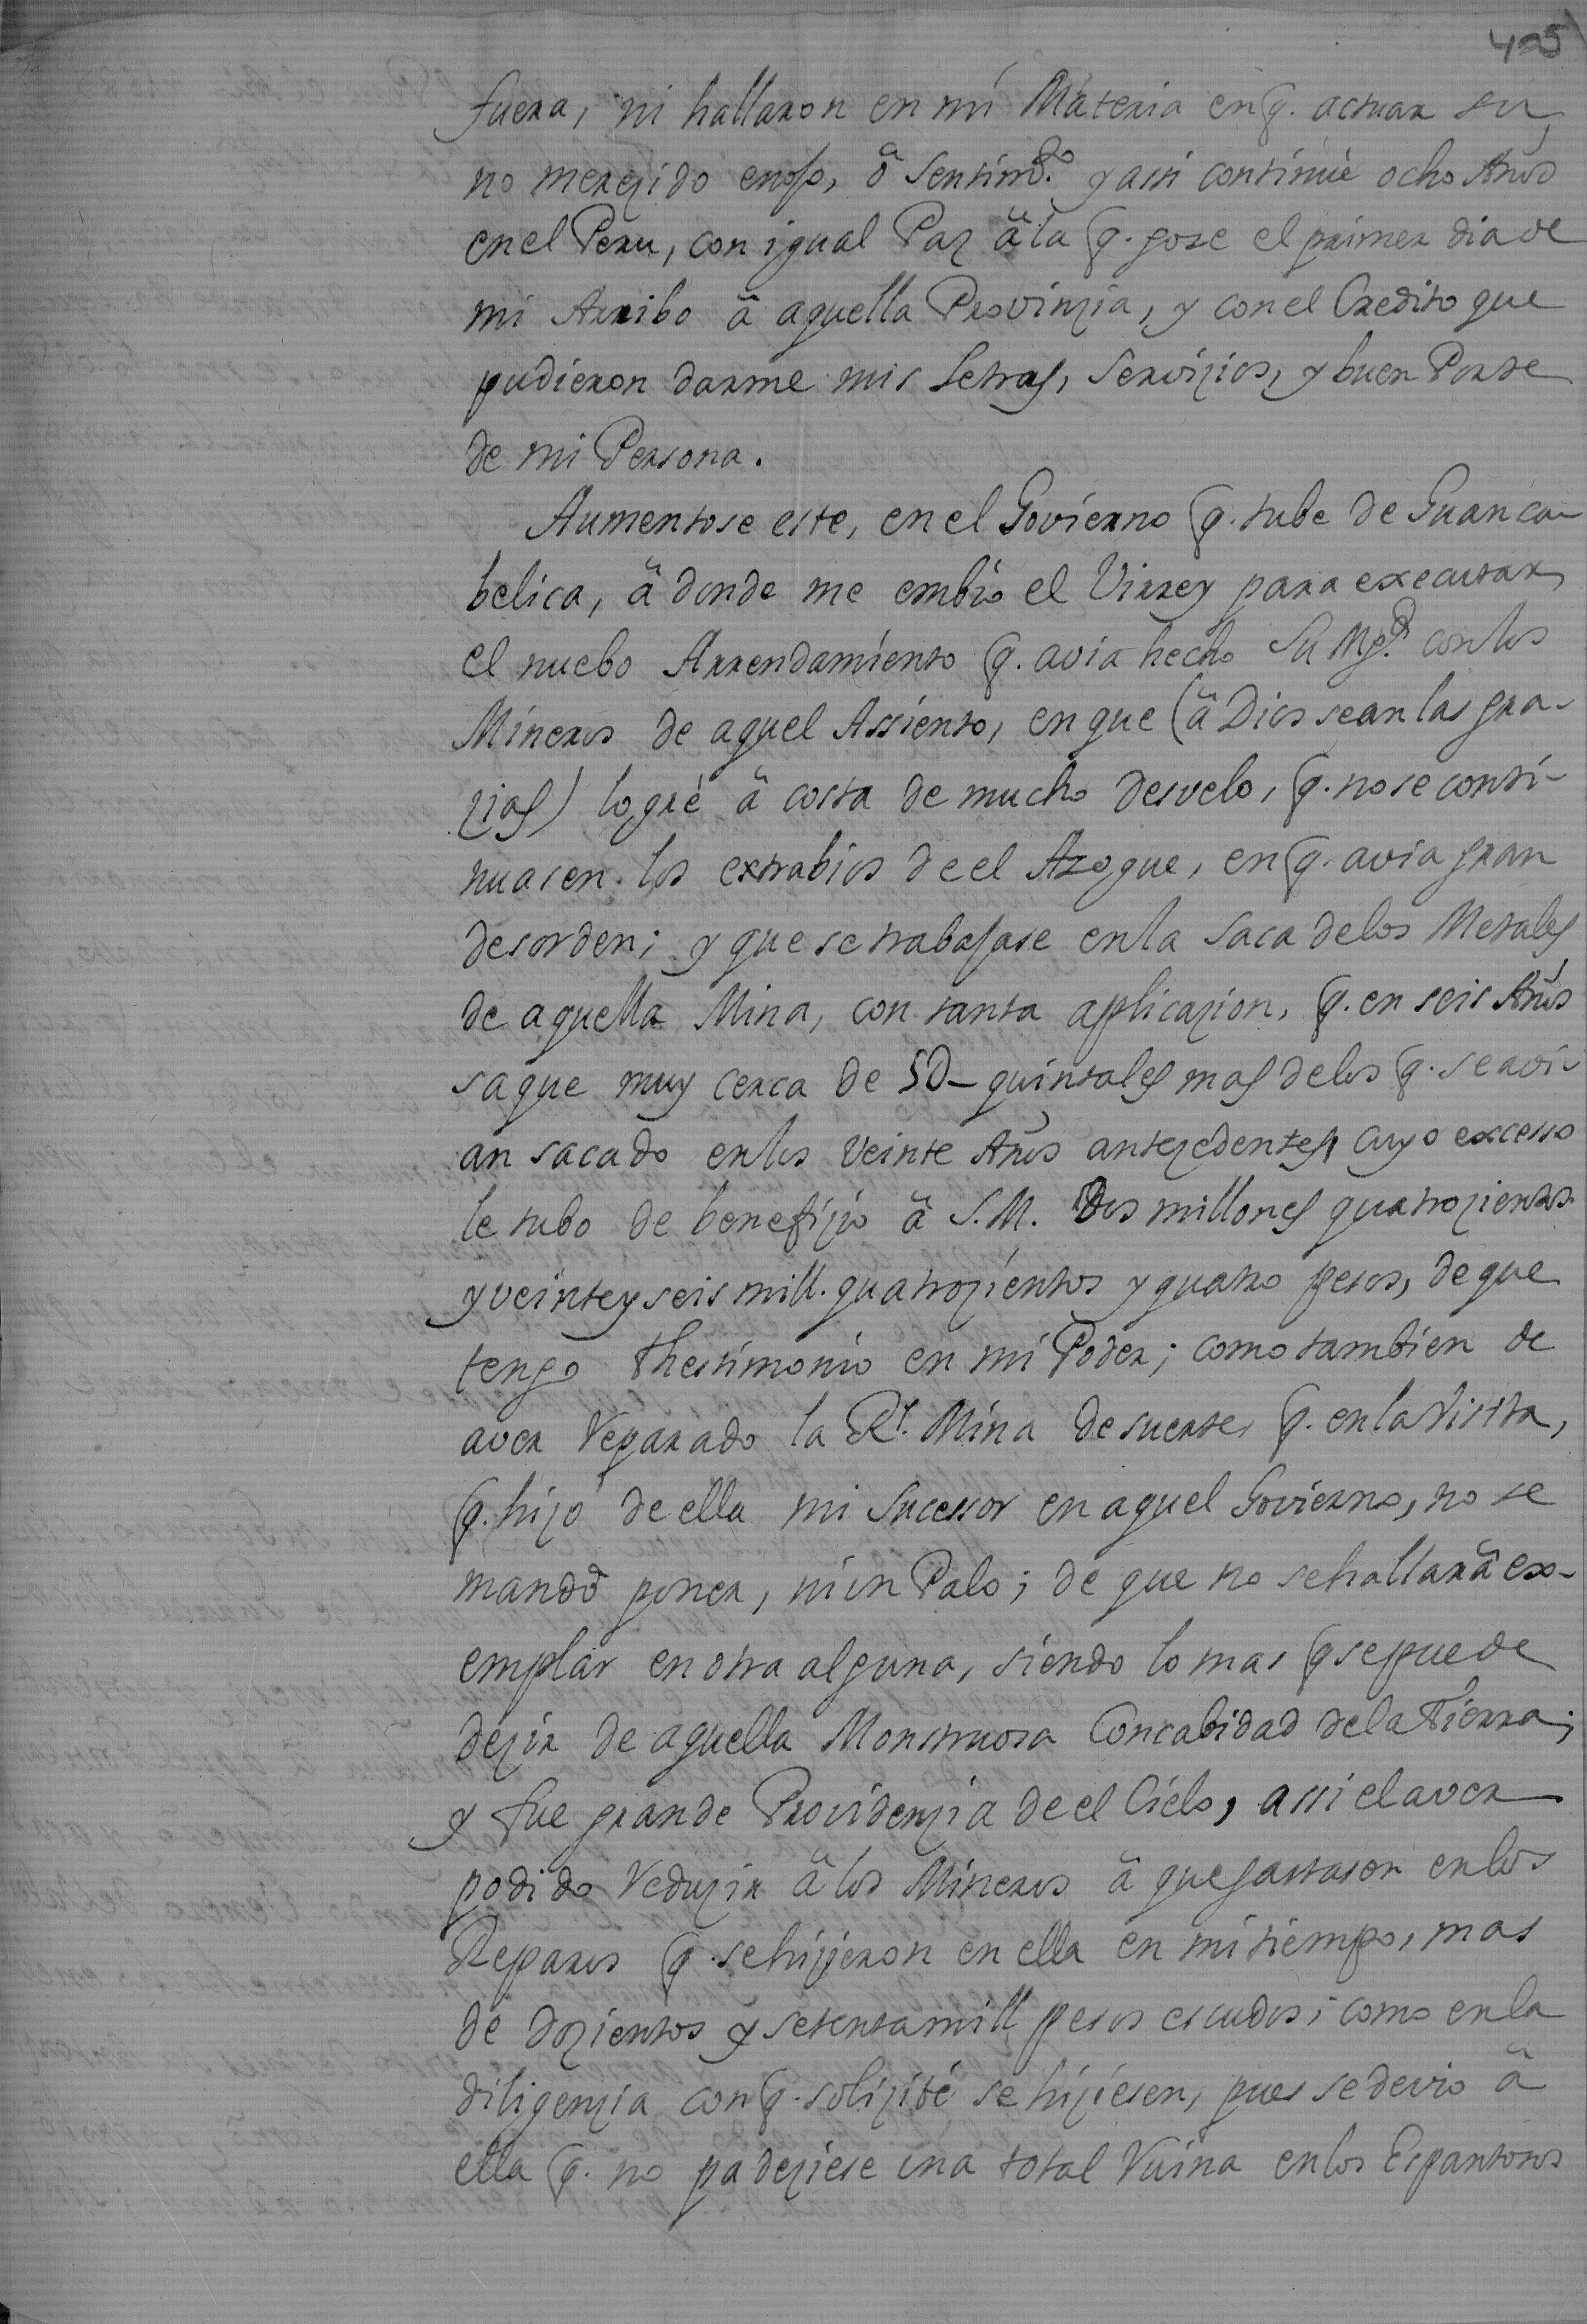 405
fuera, ni hallaron en mi Materia en q. actuar su
no merezido enojo, ô Sentim.to y assi continué ocho Años
en el Peru, con igual Paz â la q. goze el primer dia de
mi Arribo â aquella Provinzia, y con el Credito que
pudieron darme mis Letras, Servizios, y buen Porte
de mi Persona.
Aumentose este, en el Govierno q. tube de Guanca-
belica, â donde me embió el Virrey para executar
el nuebo Arrendamiento q. avia hecho Su Mg.d con los
Mineros de aquel Assiento, en que (â Dios sean las gra-
zias) logré â costa de mucho desvelo, q. no se conti-
nuasen los extrabios de el Azogue, en q. avia gran
desorden; y que se trabajase en la saca de los Metales
de aquella Mina, con tanta aplicazion, q. en seis Años
saque muy cerca de 5D- quintales mas de los q. se avi-
an sacado en los Veinte Años antezedentes, cuyo excesso
le tubo de benefizio â S.M. Dos millones quatrozientos
y veinte y seis mill. quatrozientos y quatro pesos, de que
tengo thestimonio en mi Poder; como tambien de
aver Reparado la Rl. Mina de suerte, q. en la Visita,
q. hizo de ella mi Sucessor en aquel Govierno, no se
mandô poner, ni un Palo; de que no se hallarâ ex-
emplar en otra alguna, siendo lo mas q se puede
dezir de aquella Monstruosa Concabidad de la Tierra;
y fue grande Providenzia de el Cielo, assi el aver
podido Reduzir â los Mineros â que gastasen en los
Reparos q. se hizieron en ella en mi tiempo, mas
de dozientos y setenta mill pesos escudos; como en la
diligenzia con q. solizité se hiziesen, pues se devio â
ella q. no padeziese una total Ruina en los Espantosos